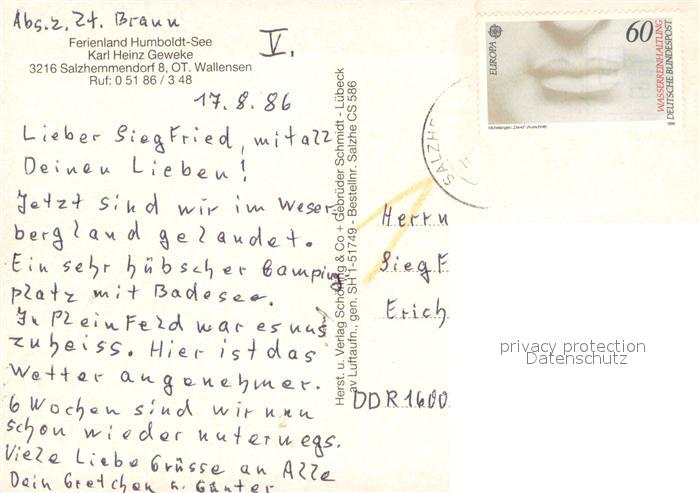 Abs. z. Zt. Braun
Ferienland Humboldt-See
Karl Heinz Geweke
3216 Salzhemmendorf 8, OT. Wallensen
Ruf: 0 51 86 / 3 48
V.
17.8.86
Lieber Siegfried, mit all
Deinen Lieben!
Jetzt sind wir im Weser-
bergland gelandet.
Ein sehr hübscher Camping-
platz mit Badesee.
In Pleinfeld war es uns
zu heiss. Hier ist das
Wetter angenehmer.
6 Wochen sind wir nun
schon wieder unterwegs.
Viele Liebe Grüsse an Alle
Dein Gretchen u. Günter
Herst. u. Verlag Schöning & Co + Gebrüder Schmidt - Lübeck
av Luftaufn., gen. SH 1-51749 - Bestellnr. Salzhe CS 586
EUROPA
60
WASSERREINHALTUNG
DEUTSCHE BUNDESPOST
Michelangelo: „David" (Ausschnitt)
1986
SALZHE
Herrn
Siegf
Erich
DDR 1600
privacy protection
Datenschutz